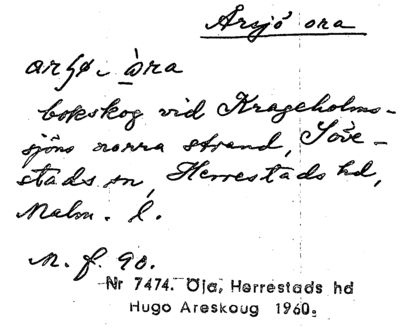 Arsjö ora
bokskog vid Krageholms-
sjöns norra strand, Söve-
stads sn, Herrestads hd,
Malm. l.
M. f. 90.
Nr 7474. Öja, Herrestads hd
Hugo Areskoug 1960.